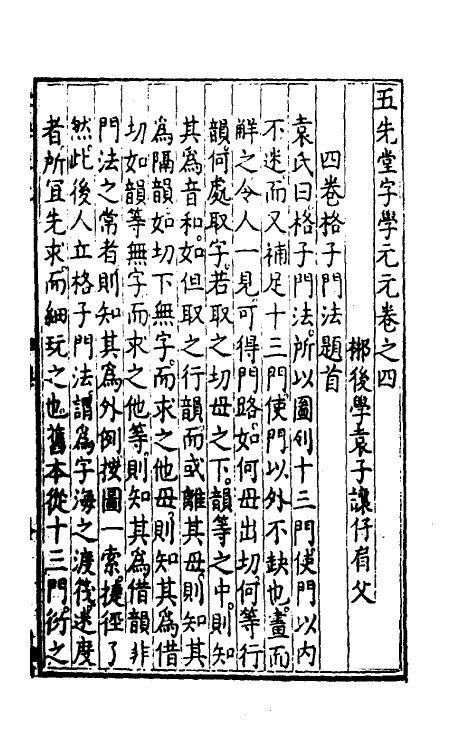 五先堂字學元元卷之四
郴後學袁子讓仔肩父
四卷格子門法題首
袁氏曰格子門法所以圖列十三門使門以內
不迷而又補足十三門使門以外不缺也畫而
觧之令人一見可得門路如何母出切何等行
韻何處取字若取之切母之下韻等之中則知
其為音和如但取之行韻而或離其母則知其
為隔韻如切下無字而求之他母則知其為借
切如韻等無字而求之他等則知其為借韻非
門法之常者則知其為外例按圖一索捷徑了
然此後人立格子門法謂為字海之渡筏迷度
者所宜先求而細玩之也舊本從十三門衍之